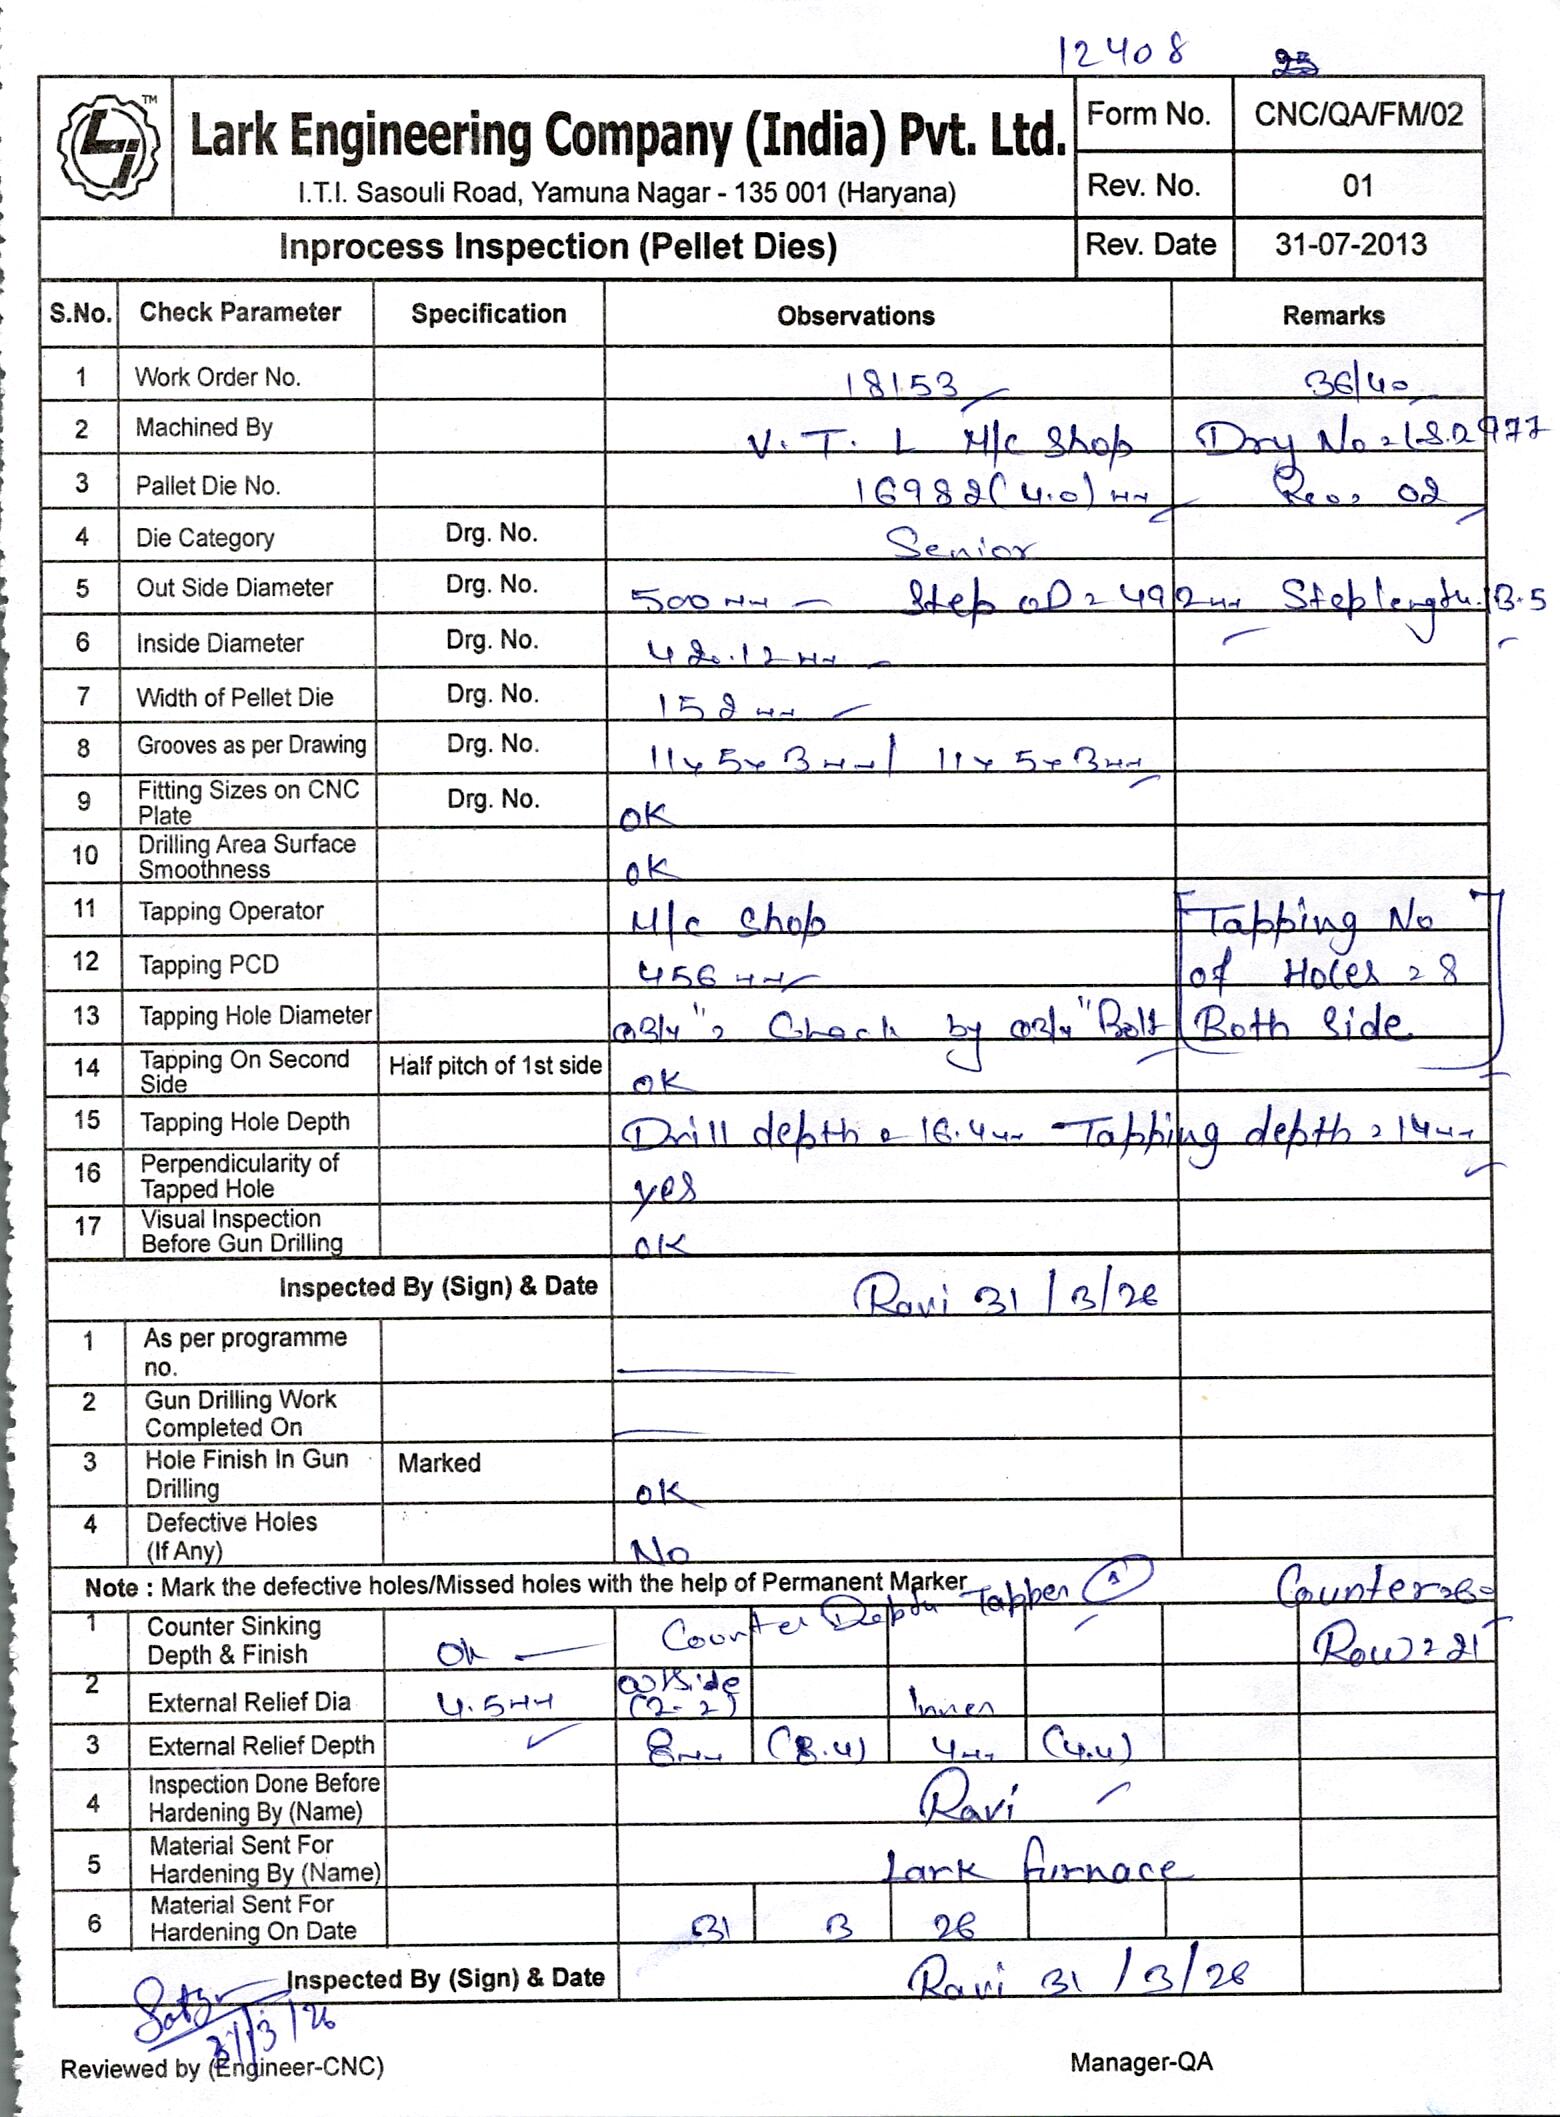 12408 25
LJ TM
Lark Engineering Company (India) Pvt. Ltd.
I.T.I. Sasouli Road, Yamuna Nagar - 135 001 (Haryana)
Form No. CNC/QA/FM/02
Rev. No. 01
Inprocess Inspection (Pellet Dies) Rev. Date 31-07-2013
S.No. Check Parameter Specification Observations Remarks
1 Work Order No. 18153 36/40
2 Machined By V. T. L M/c Shop Drg No = LS.2977
3 Pallet Die No. 16982 (4.0) mm Rev = 02
4 Die Category Drg. No. Senior
5 Out Side Diameter Drg. No. 500 mm Step OD = 492 mm Step length = 13.5
6 Inside Diameter Drg. No. 420.12 mm
7 Width of Pellet Die Drg. No. 152 mm
8 Grooves as per Drawing Drg. No. 11 x 5 x 3 mm / 11 x 5 x 3 mm
9 Fitting Sizes on CNC Plate Drg. No. OK
10 Drilling Area Surface Smoothness OK
11 Tapping Operator M/c Shop Tapping No
12 Tapping PCD 456 mm of Holes = 8
13 Tapping Hole Diameter 3/4" = Check by 3/4" Bolt Both Side
14 Tapping On Second Side Half pitch of 1st side OK
15 Tapping Hole Depth Drill depth = 16.4 mm Tapping depth = 14 mm
16 Perpendicularity of Tapped Hole yes
17 Visual Inspection Before Gun Drilling OK
Inspected By (Sign) & Date Ravi 31/3/26
1 As per programme no.
2 Gun Drilling Work Completed On
3 Hole Finish In Gun Drilling Marked OK
4 Defective Holes (If Any) No
Note : Mark the defective holes/Missed holes with the help of Permanent Marker
1 Counter Sinking Depth & Finish Ok Counter Depth Tapper Counter
Row = 21
2 External Relief Dia 4.5 mm outside (2-2) Inner
3 External Relief Depth 8 mm (8.4) 4 mm (4.4)
4 Inspection Done Before Hardening By (Name) Ravi
5 Material Sent For Hardening By (Name) Lark furnace
6 Material Sent For Hardening On Date 31 3 26
Inspected By (Sign) & Date Ravi 31/3/26
31/3/26
Reviewed by (Engineer-CNC) Manager-QA